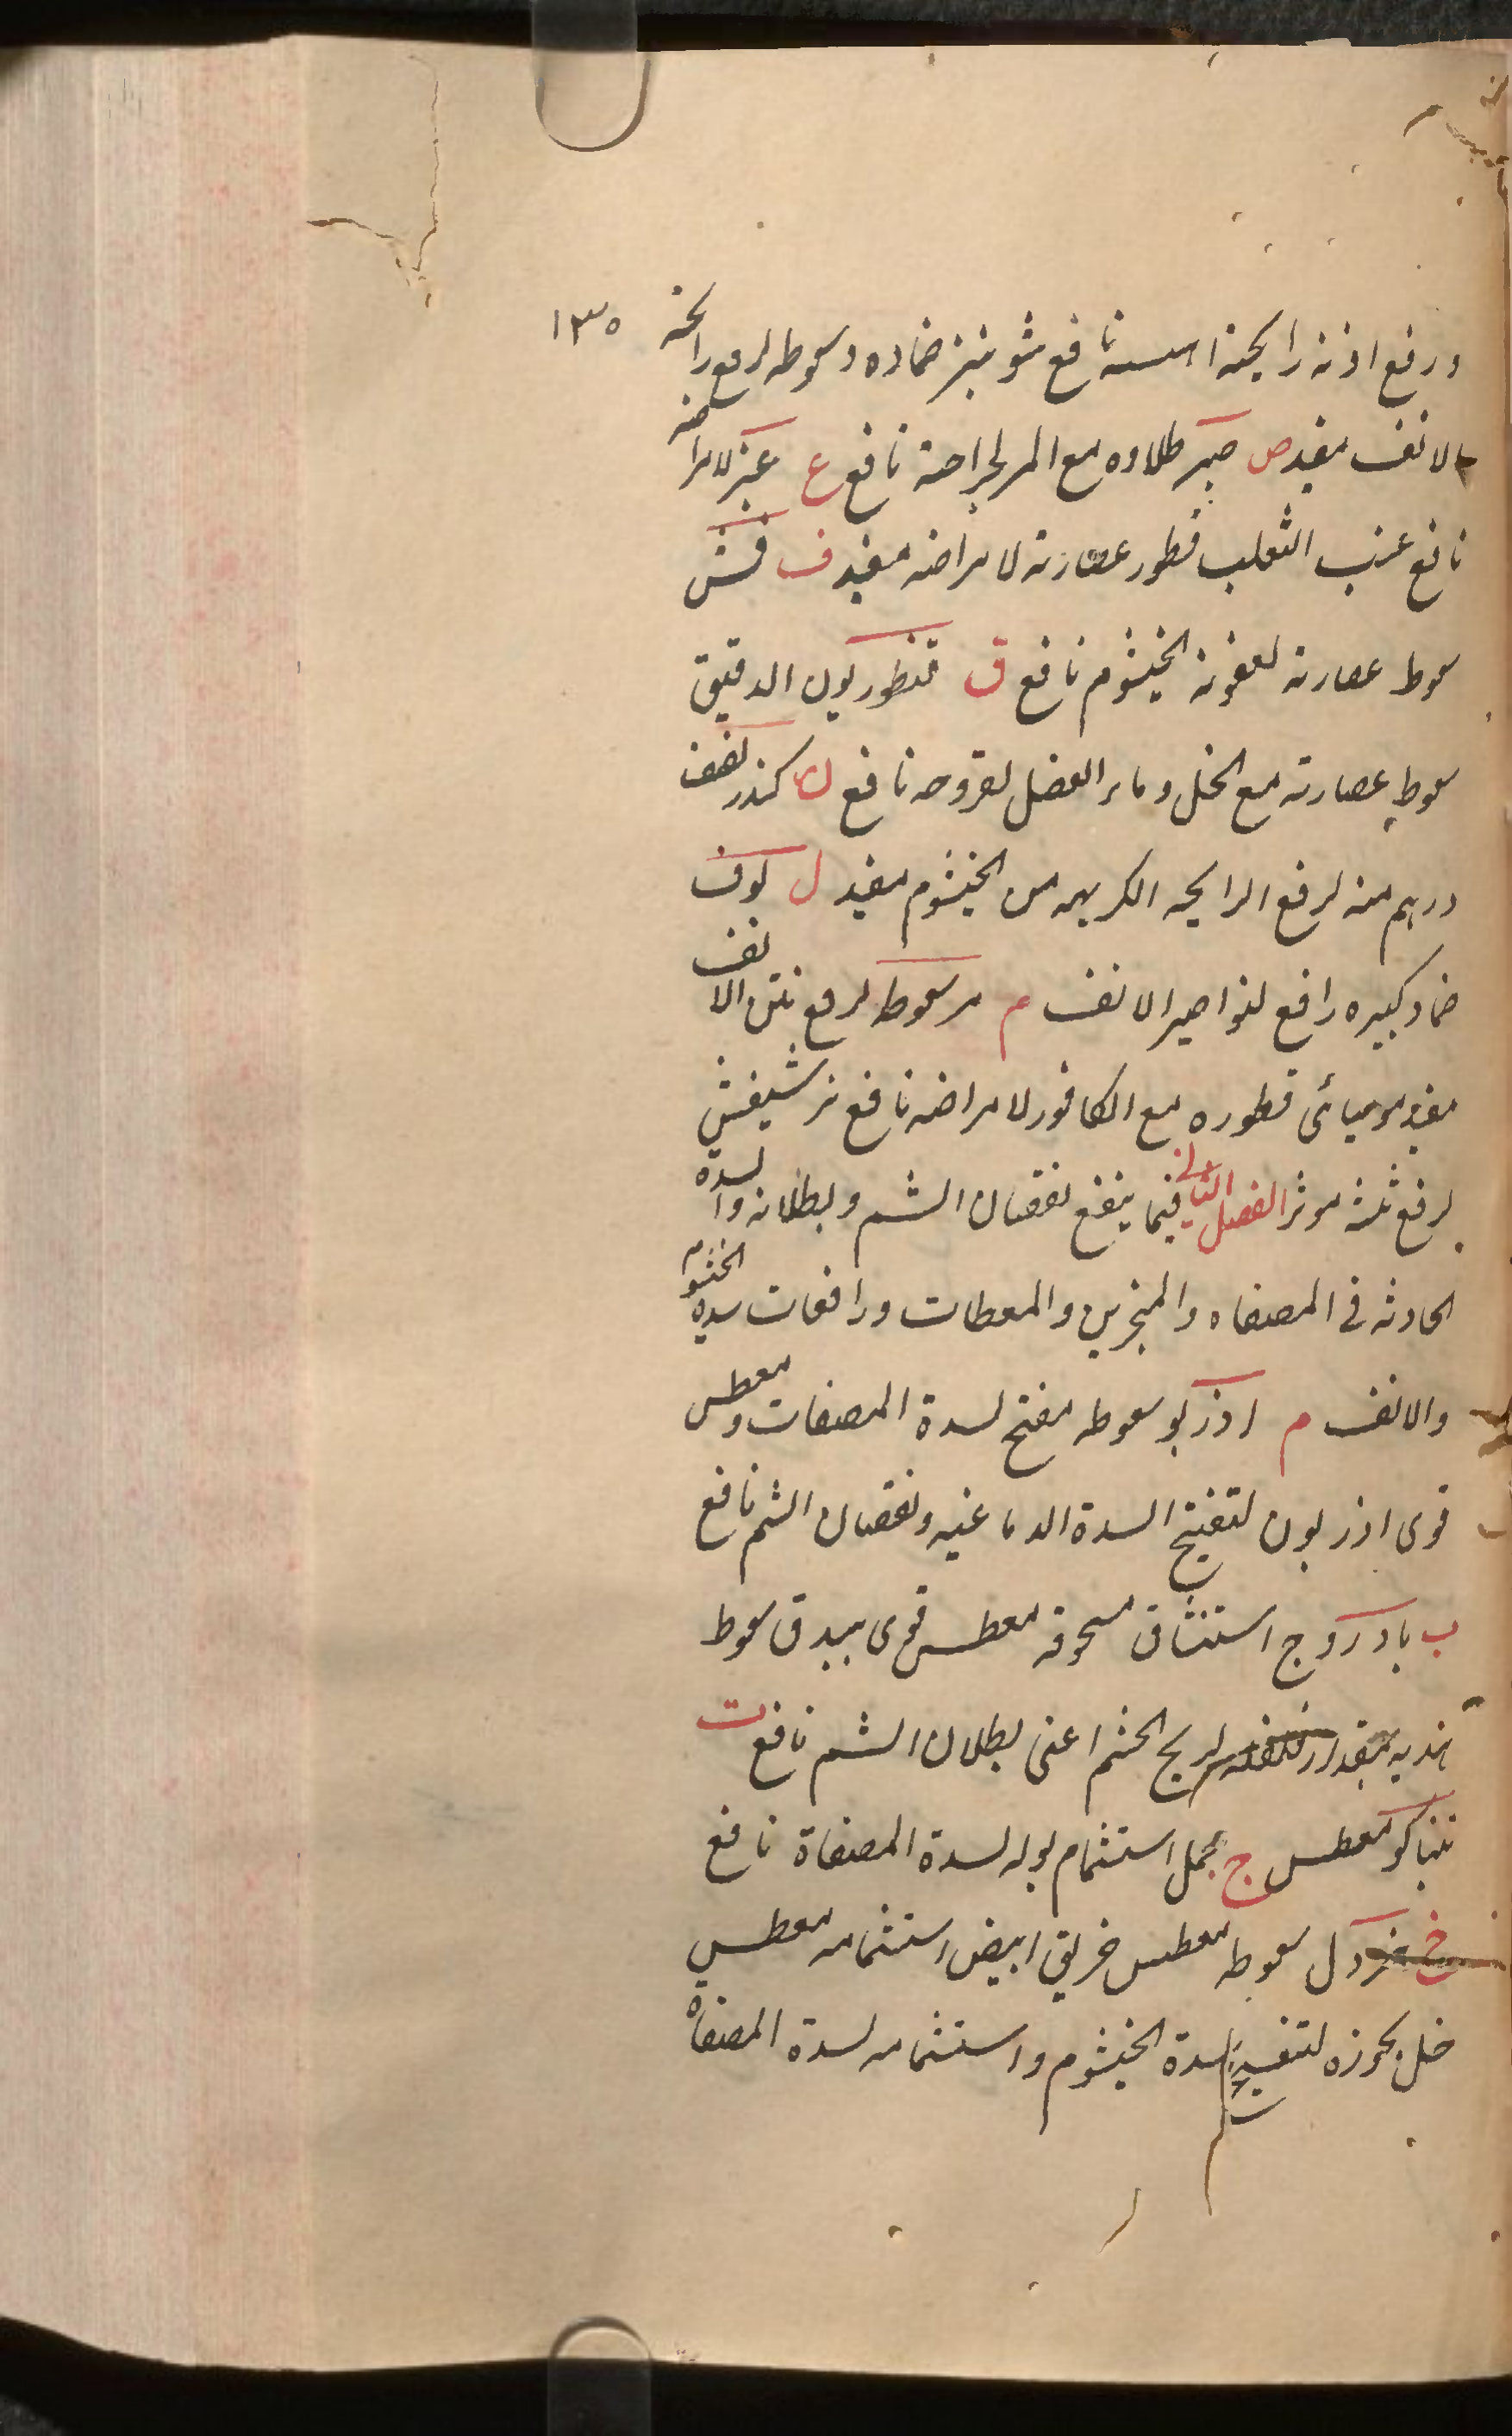 ١٣٥
ورفع اذنه رايحته نافع شونيز ضماده وسعوطه لرفع رائحة
الانف مفيد ص صبر طلاوه مع المر لجراحته نافع ع عنبر لامراضه
نافع عنب الثعلب قطور عصارته لامراضه مفيد ف
سعوط عصارته لعفونه الخيشوم نافع ق قنطوريون الدقيق
سعوط عصارته مع الخل وماء العضل لقروحه نافع ك كندر نصف
درهم منه لرفع الرايحه الكريهه من الخيشوم مفيد ل لوف
ضماد كبيره رافع لنواصير الانف م مر سعوط لرفع نتن الانف
مفيد موميائى قطوره مع الكافور لامراضه نافع
لرفع موثر الفصل الثانى فيما ينفع نقصان الشم وبطلانه والسدة
الحادثه فى المصفاه والمنخرين والمعطسات ورافعات سدة الخيشوم
والانف م اذربو سعوطه مفتح لسدة المصفات ومعطس
قوى اذريون لتفتيح السدة الدماغيه ونقصان الشم نافع
ب بادروج استنشاق مسحوقه معطس قوى ببندق سعوط
هنديه بمقدار لريح الخشم اعنى بطلان الشم نافع ت
تنباكو معطس ج جمل استشمام بوله لسدة المصفاة نافع
خ خردل سعوطه معطس خربق ابيض استشمامه معطس
خل بخوره لتفتيح سدة الخيشوم واستشمامه لسدة المصفاة